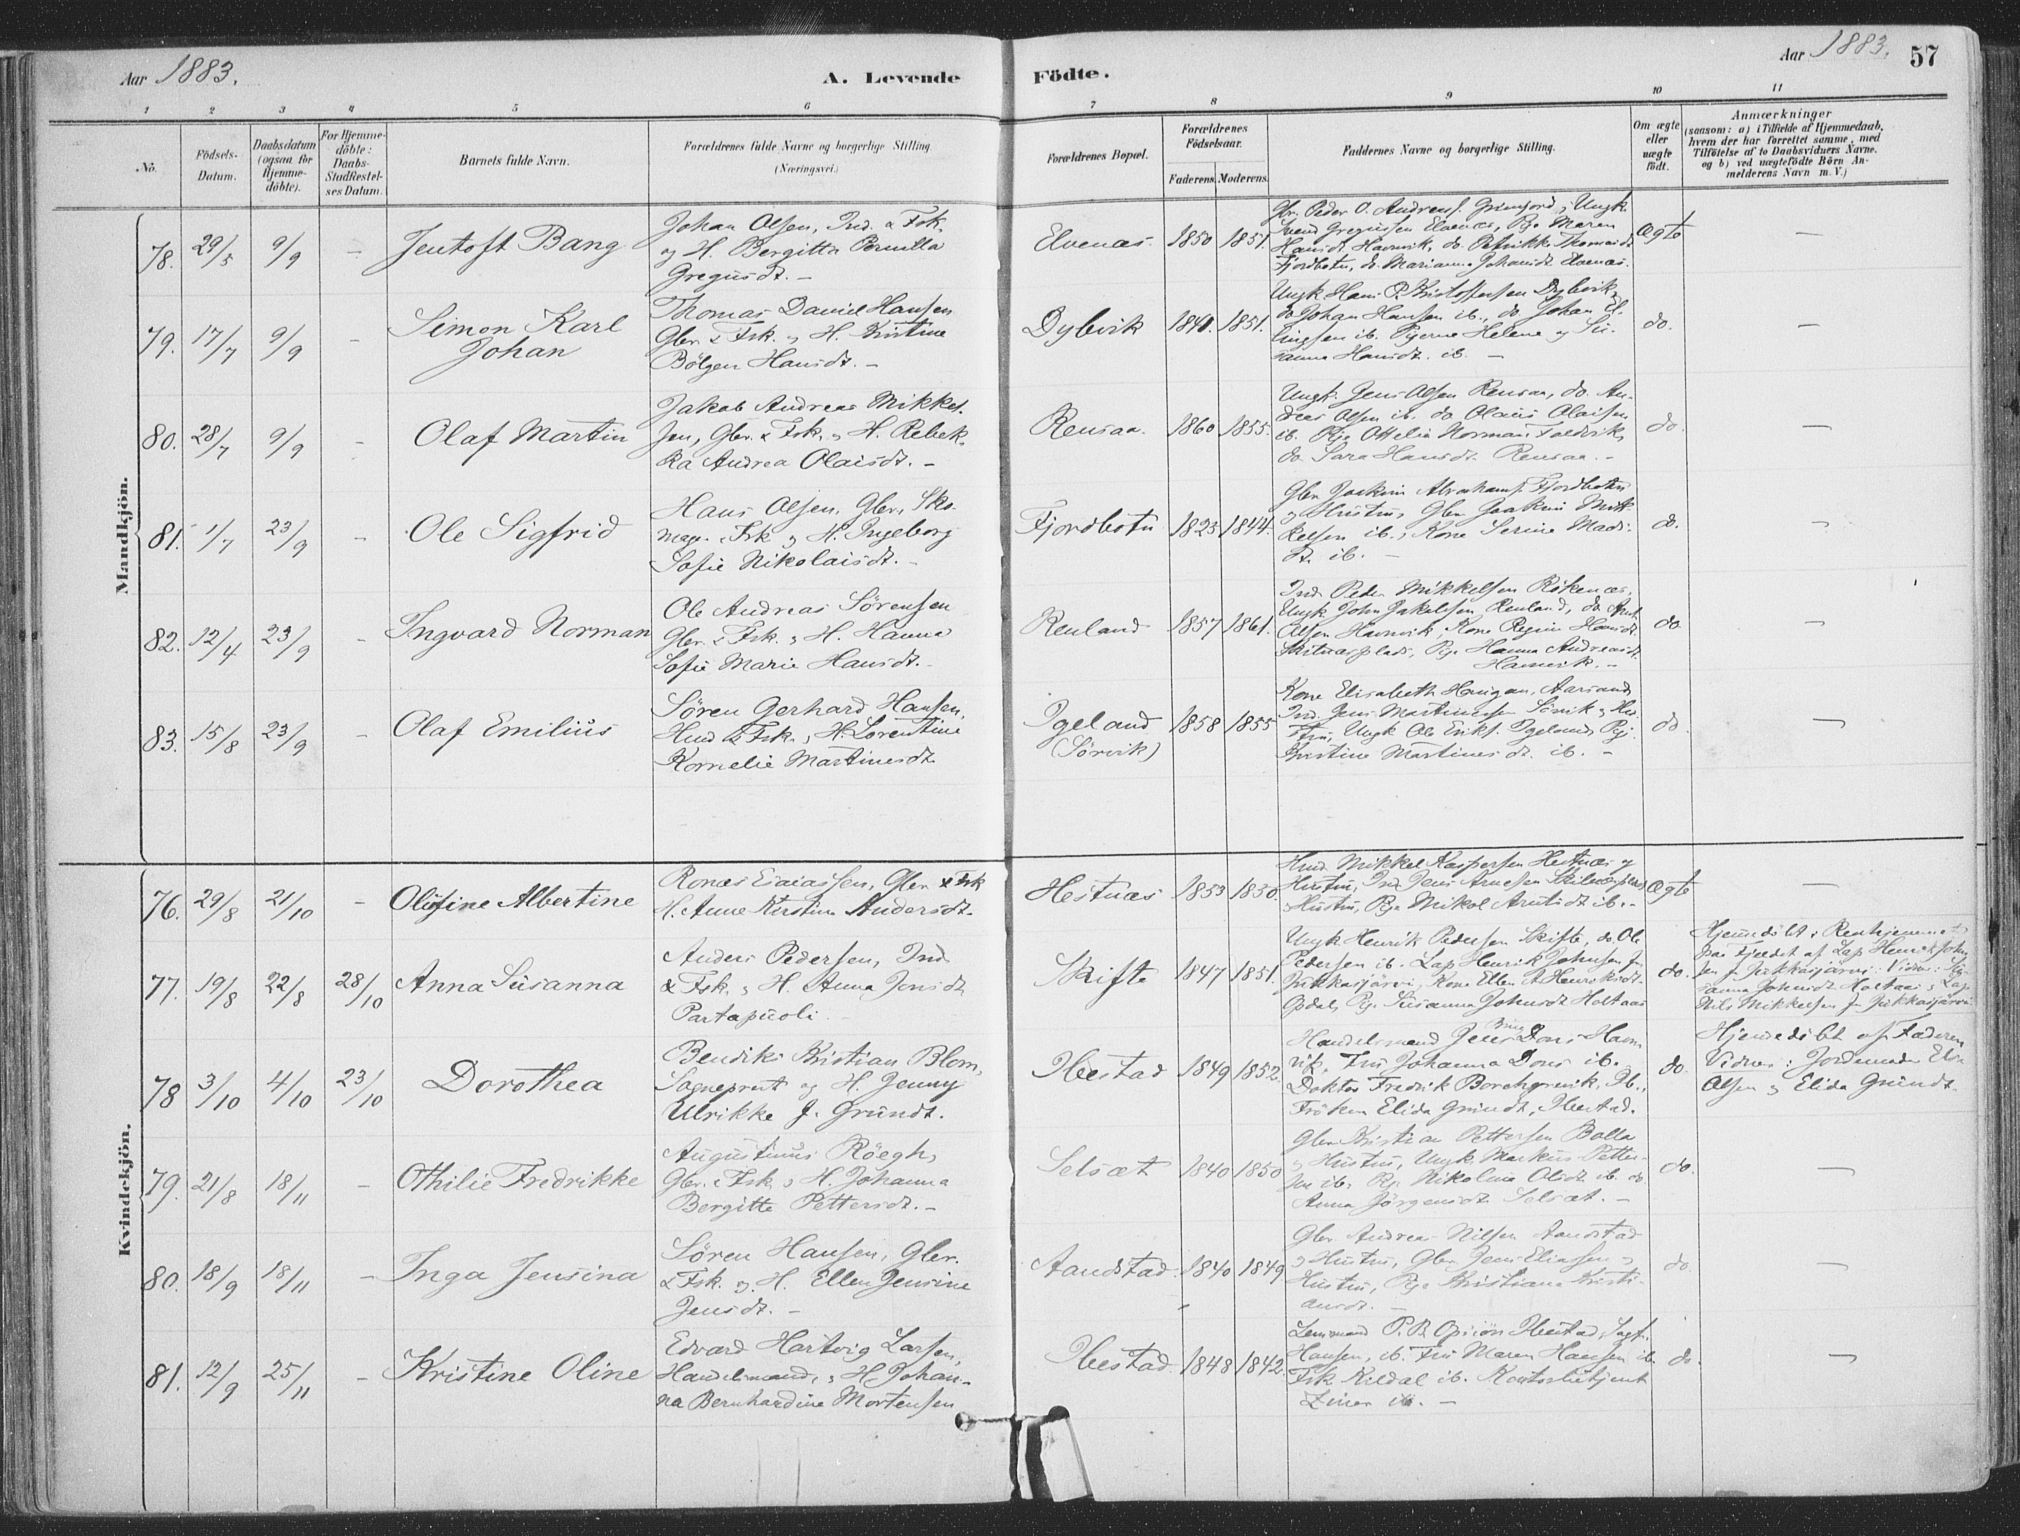 Aar 1883.
A. Levende
Födte.
Aar 1883.
57
1 2 3 4 5 6 7 8 9 10 11
No.
Födsels-
Datum.
Daabsdatum
(ogsaa for
Hjemme-
döbte).
For Hjemme-
döbte:
Daabs-
Stadfæstel-
ses Datum.
Barnets fulde Navn.
Forældrenes fulde Navne og borgerlige Stilling
(Næringsvei.)
Forældrenes Bopæl.
Forældrenes
Födselsaar.
Faderens. Moderens.
Faddernes Navne og borgerlige Stilling.
Om ægte
eller
uægte
födt.
Anmærkninger
(saasom: a) i Tilfælde af Hjemmedaab,
hvem der har forrettet samme, med
Tilföielse af to Daabsvidners Navne.
og b) ved uægtefödte Börn An-
melderens Navn m. V.)
Mandkjön.
78. 29/5 9/9 - Jentoft Bang
Johan Olsen, Ind. & Fsk.
og H. Bergitta Pernilla
Gregusdt. -
Elvenæs. 1850 1851.
Gbr. Peder O. Andreasf. Grimfjord, Ungk.
Svend Gregussen Elvenæs, Pge Maren
Hansdt. Havnvik, do. Petrikke Thomasdt
Fjordbotn, do. Marianna Johansdt. Elvenæs.
ægte -
79. 17/7 9/9 - Simon Karl
Johan
Thomas Daniel Hansen
Gbr. & Fsk. og H. Kristine
Bölgen Hansdt. -
Dybvik 1840. 1851.
Ungk Hans P. Kristoffersen Dybvik,
do Johan Hansen ib., do Johan El-
lingsen ib. Pigerne Helene og Su-
sanna Hansdt. ib. -
do. -
80. 28/7 9/9 - Olaf Martin
Jakob Andreas Mikkel-
sen, Gbr. & Fsk. og H. Rebek-
ka Andrea Olaisdt. -
Rensaa. 1860 1855.
Ungk. Jens Olsen Rensaa, do. An-
dreas Olsen ib. do Olaus Olaisen
ib. Pge Ottelia Norman Foldvik,
do Sara Hansdt. Rensaa. -
do. -
81. 1/7 23/9 - Ole Sigfrid
Hans Olsen, Gbr., Sko-
mager & Fsk og H. Ingeborg
Sofie Nikolaisdt. -
Fjordbotn 1823 1844.
Gbr Joakim Abrahamf. Fjordbotn
og Hustru, Gbr Joakim Mik-
kelsen ib., Kone Serine Mads-
dt. ib. -
do. -
82. 12/4 23/9 - Ingvard Norman
Ole Andreas Sørensen
Gbr. & Fsk. og H. Hanna
Sofie Marie Hansdt. -
Renland 1857 1861.
Ind. Peder Mikkelsen Rökenæs,
Ungk John Jakobsen Renland, do
Olsen Havnvik, Kone Regine Hansdt.
Pge Hanna Andreasdt.
Havnvik. -
do -
83. 15/8 23/9 - Olaf Emilius
Søren Gerhard Hansen,
Hmd & Fsk. og H. Lorentine
Kornelie Martinesdt.
Igeland
(Sørvik)
1858 1855
Kone Elisabeth Haugan, Aarsand,
Ind. Jens Martinussen Sörvik og Hus-
tru, Ungk Ole Eriks. Igeland, Pge
Kristine Martinesdt. ib. -
do. -
Kvindekjön.
76. 29/8 21/10 - Olufine Albertine
Ronæs Esaiassen, Gbr & Fsk
H. Anne Kirstine Andersdt.
Hestnæs 1853 1850.
Hmd Mikkel Kaspersen Hestnæs og
Hustru, Ind Jens Arnesen
Hustru, Pge Mikol Arntsdt ib. -
Ægte -
77. 19/8 22/8 28/10 Anna Susanna
Anders Pedersen, Ind
& Fsk. og H. Anna Jonsdt.
Partapuoli. -
Skifte 1847 1851.
Ungk Henrik Pedersen Skifte, do. Ole
Pedersen ib. Lap Henrik Johnsen fr.
Jukkasjärvi, Kone Ellen A. Henriksdt.
Pge Susanna Johnsdt Holtaas
do.
Hjemmedöbt i Renhjemmet
paa Fjeldet af Lap Henrik John-
sen fr Jukkasjärvi. Vidner: Su-
sanna Johnsdt Holtaas og Lap
Nils Mikkelsen fr Jukkasjärvi
78 3/10 4/10 23/10 Dorothea
Bendiks Kristian Blom,
Sogneprest og H. Jenny
Ulrikke J. Grundt.
Ibestad 1849 1852.
Handelsmand Jens Bing Dons Havn-
vik, Fru Johanna Dons ib.
Doktor Fredrik Borchgrevik, Ib.,
Fröken Elida Grundt, Ibestad.
do.
Hjemmedöbt af Faderen
Vidner: Jordemoder
Olsen og Elida Grundt.
79. 21/8 18/11 - Othilie Fredrikke
Augustinus Röegh,
Gbr. & Fsk. og H. Johanna
Bergitte Pettersdt. -
Selsæt 1840 1850
Gbr Kristian Pettersen Bolla
og Hustru, Ungk Markus Petter-
sen ib., Pge Nikoline Olsdt ib. do
Anna Jörgensdt. Selsæt. -
do. -
80. 18/9 18/11 - Inga Jensina
Søren Hansen, Gbr.
& Fsk. og H. Ellen Jensine
Jensdt. -
Aandstad 1840 1849
Gbr Andreas Nilsen Aandstad
og Hustru, Gbr Jens Eliassen og
Hustru, Pge Kristiane Kristi-
ansdt. -
do. -
81. 12/9 25/11 - Kristine Oline
Edvard Hartvig Larsen,
Handelsmand, og H. Johan-
na Bernhardine Mortensen
Ibestad 1848 1842.
Lensmand P. B. Ibestad,
Hansen, ib. Fru Maren Hansen ib.
Fsk Kildal ib. Kontorbetjent
ib. -
do. -